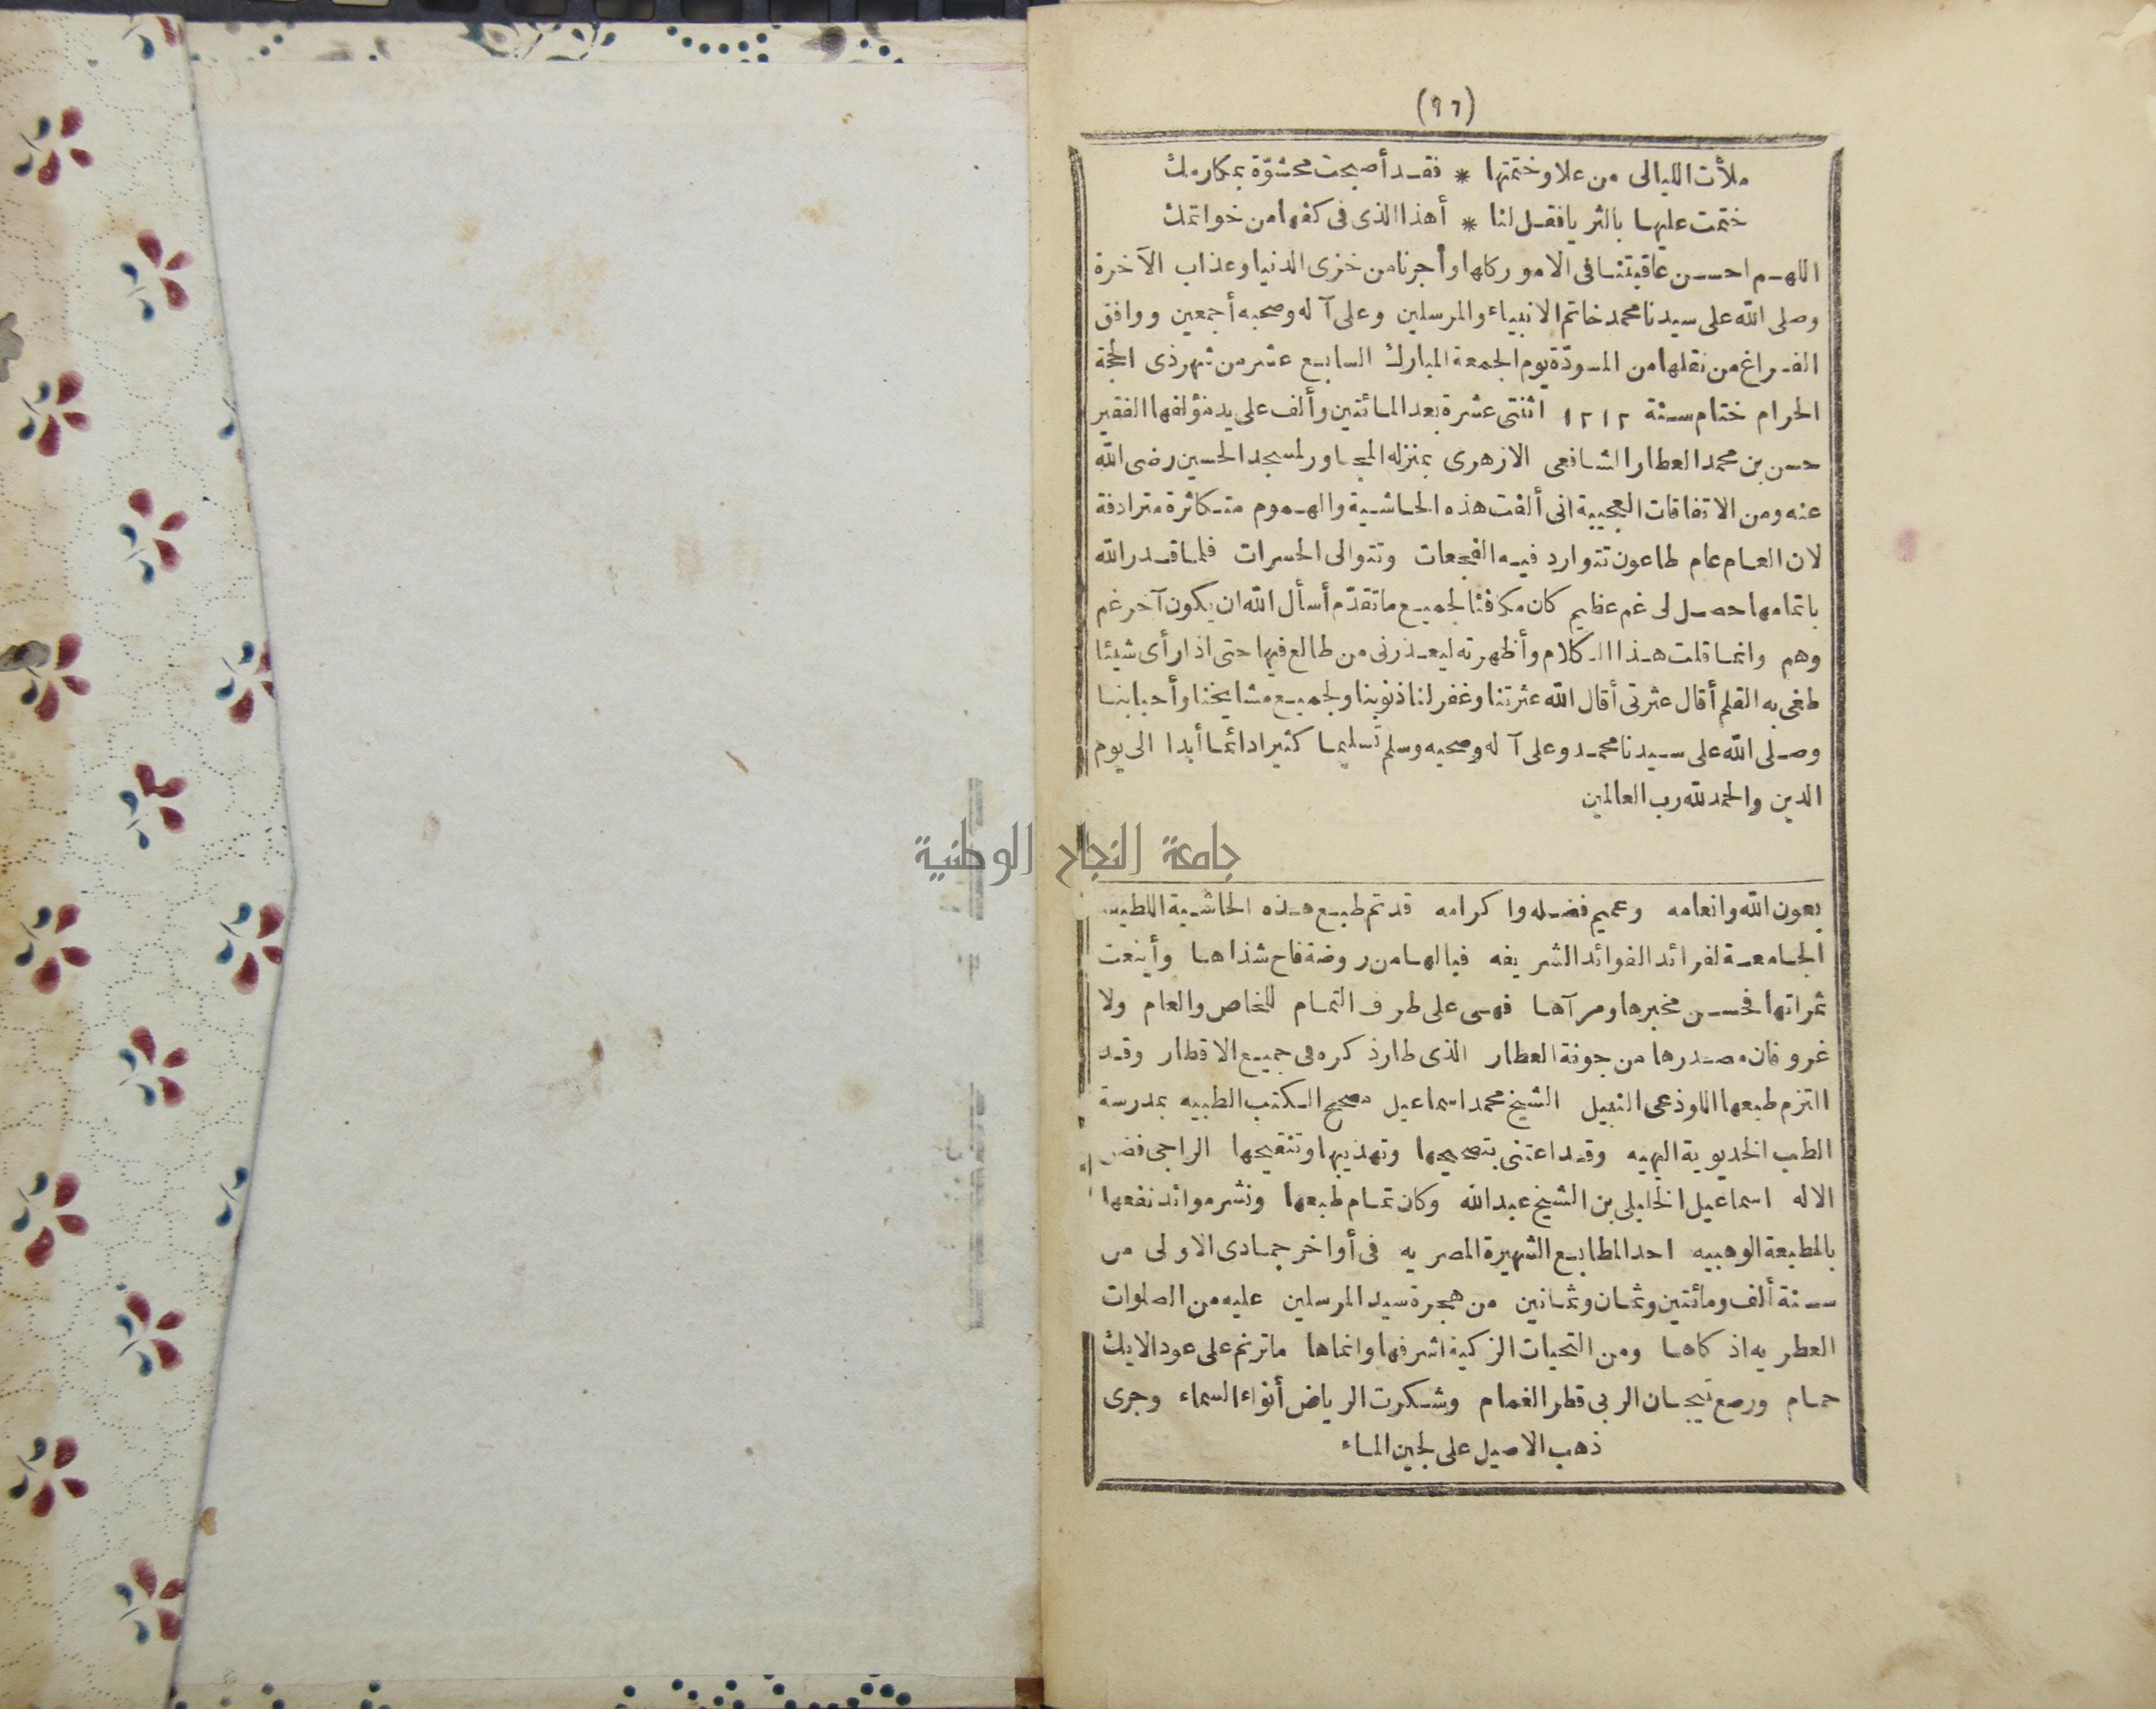 (٩٦)
ملأت الليالى من علا وختمتها * فقد أصبحت محشوّة بمكارمك
ختمت عليها بالثريا فقل لنا * أهذا الذى فى كفها من خواتمك
اللهم احسن عاقبتنا فى الامور كلها وأجرنا من خزى الدنيا وعذاب الآخرة
وصلى الله على سيدنا محمد خاتم الانبياء والمرسلين وعلى آله وصحبه أجمعين ووافق
الفراغ من نقلها من المسودّة يوم الجمعة المبارك السابع عشر من شهر ذى الحجة
الحرام ختام سنة ١٢١٢ اثنتى عشرة بعد المائتين وألف على يد مؤلفها الفقير
حسن بن محمد العطار الشافعى الازهرى بمنزله المجاور لمسجد الحسين رضى الله
عنه ومن الاتفاقات العجيبة انى ألفت هذه الحاشية والهموم متكاثرة مترادفة
لان العام عام طاعون تتوارد فيه الفجعات وتتوالى الحسرات فلما قدر الله
باتمامها حصل لى غم عظيم كان مكافئا لجميع ما تقدّم أسأل الله ان يكون آخر غم
وهم وانما قلت هذا الكلام وأظهرته ليعذرنى من طالع فيها حتى اذا رأى شيئا
طغى به القلم أقال عثرتى أقال الله عثرتنا وغفر لنا ذنوبنا ولجميع مشايخنا وأحبابنا
وصلى الله على سيدنا محمد وعلى آله وصحبه وسلم تسليما كثيرا دائما أبدا الى يوم
الدين والحمد لله رب العالمين
جامعة النجاح الوطنية
بعون الله وانعامه وعميم فضله واكرامه قد تم طبع هذه الحاشية اللطيفه
الجامعة لفرائد الفوائد الشريفه فيالها من روضة فاح شذاها وأينعت
ثمراتها فحسن مخبرها ومرآها فهى على طرف التمام للخاص والعام ولا
غرو فان مصدرها من جونة العطار الذى طار ذكره فى جميع الاقطار وقد
التزم طبعها اللوذعى النبيل الشيخ محمد اسماعيل مصحح الكتب الطبيه بمدرسة
الطب الخديوية البهيه وقد اعتنى بتصحيحها وتهذيبها وتنقيحها الراجى فضل
الاله اسماعيل الخليلى بن الشيخ عبد الله وكان تمام طبعها ونشر موائد نفعها
بالمطبعة الوهبيه احد المطابع الشهيرة المصريه فى أواخر جمادى الاولى من
سنة ألف ومائتين وثمان وثمانين من هجرة سيد المرسلين عليه من الصلوات
العطريه اذكاها ومن التحيات الزكية اشرفها وانماها ما ترنم على عود الايك
حمام ورصع تيجان الربى قطر الغمام وشكرت الرياض أنواء السماء وجرى
ذهب الاصيل على لجين الماء